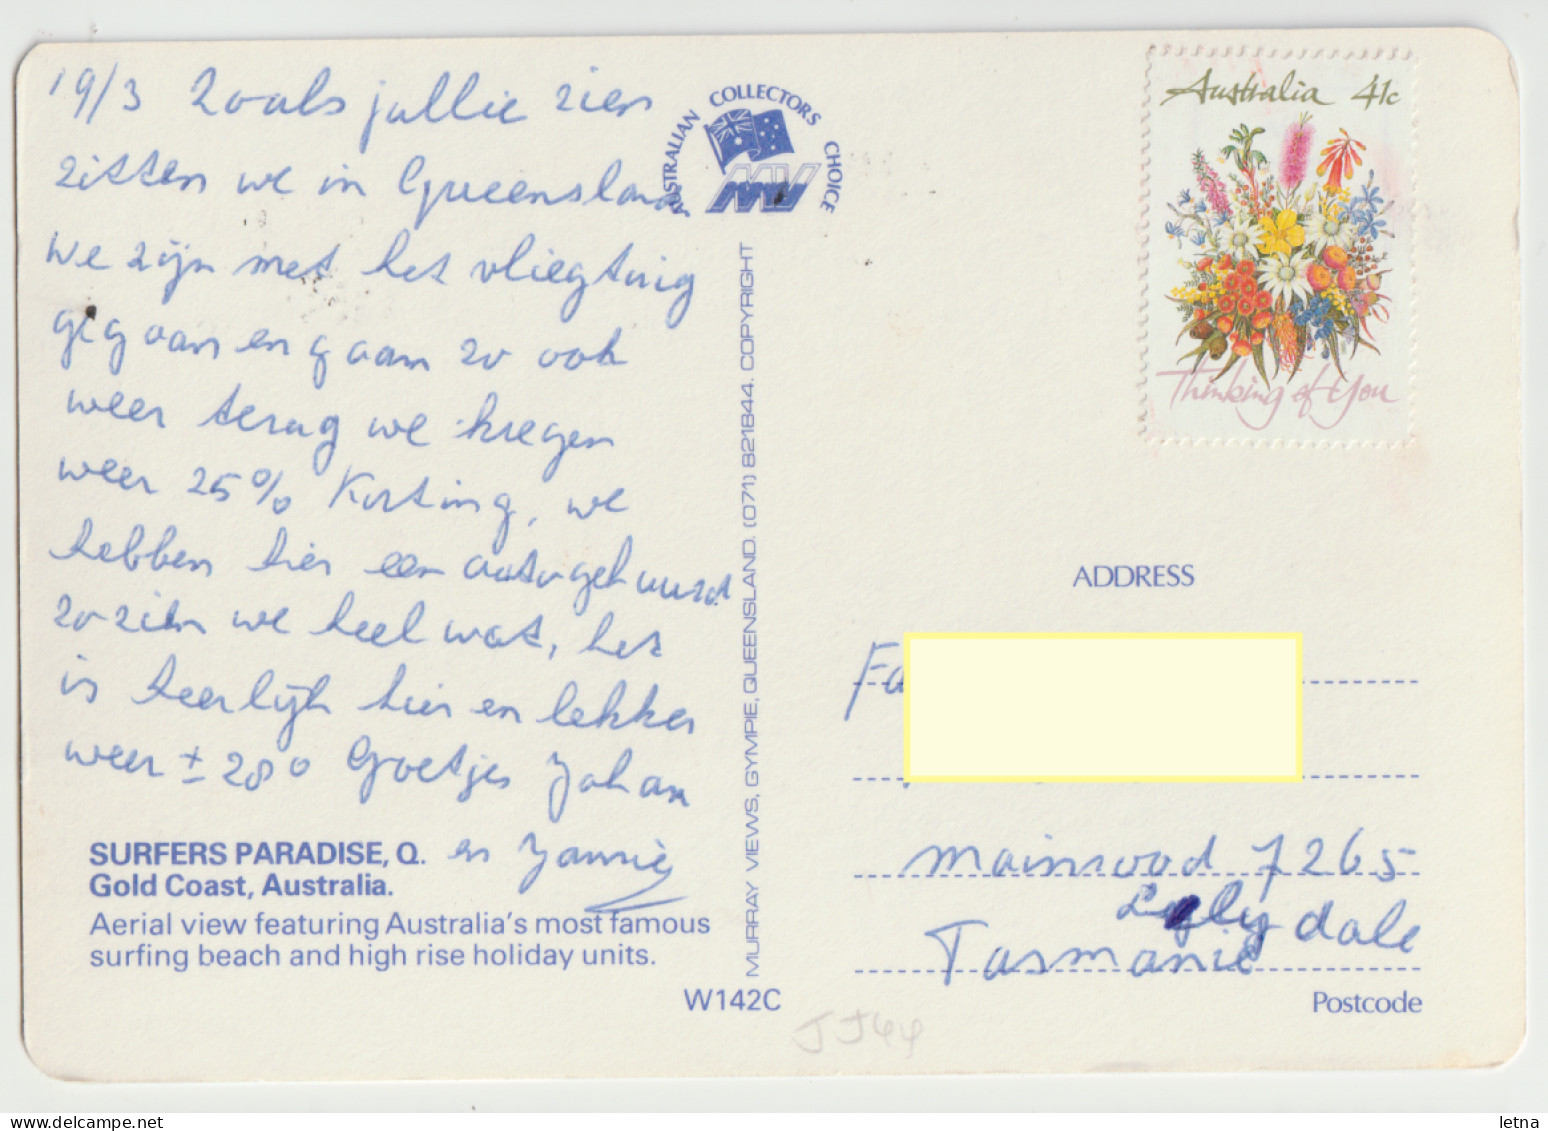 19/3 Zoals jullie zien
zitten we in Queensland
we zijn met het vliegtuig
gegaan en gaan zo ook
weer terug we kregen
weer 25% Korting, we
hebben hier een auto gehuurd
zo zien we heel wat, het
is heerlijk hier en lekker
weer ± 28° Groetjes Johan
en Jannie
SURFERS PARADISE, Q.
Gold Coast, Australia.
Aerial view featuring Australia's most famous
surfing beach and high rise holiday units.
W142C
AUSTRALIAN COLLECTORS CHOICE
MV
MURRAY VIEWS, GYMPIE, QUEENSLAND. (071) 821844. COPYRIGHT
Australia 41c
Thinking of You
ADDRESS
Fa
7265
dale
Tasmanië
Postcode
JJ44
letna